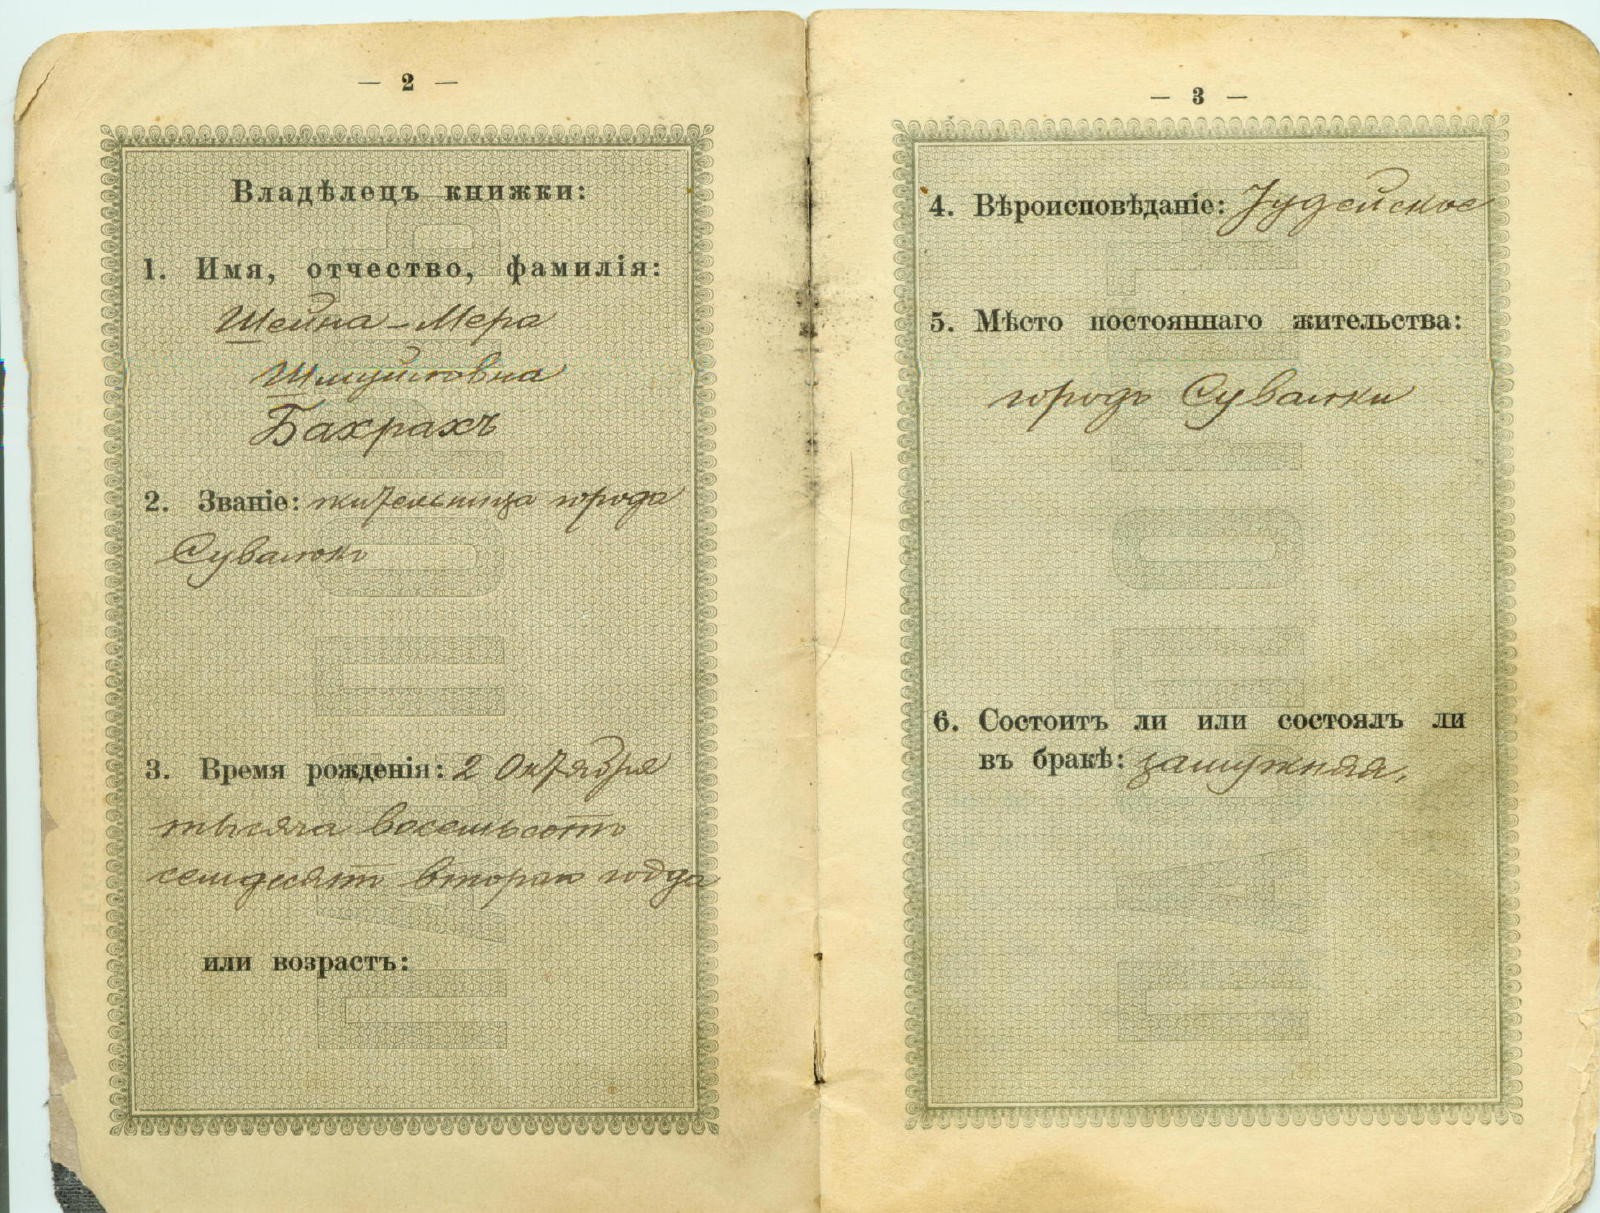 — 2 —
Владѣлецъ книжки:
1. Имя, отчество, фамилія:
Шейна-Мера
Шмуйловна
Бахрахъ
2. Званіе: жительница города
Сувалокъ
3. Время рожденія: 2 Октября
тысяча восемьсотъ
семдесятъ втораго года
или возрастъ:
— 3 —
4. Вѣроисповѣданіе: Іудейское
5. Мѣсто постояннаго жительства:
городъ Сувалки
6. Состоитъ ли или состоялъ ли
въ бракѣ: замужняя,